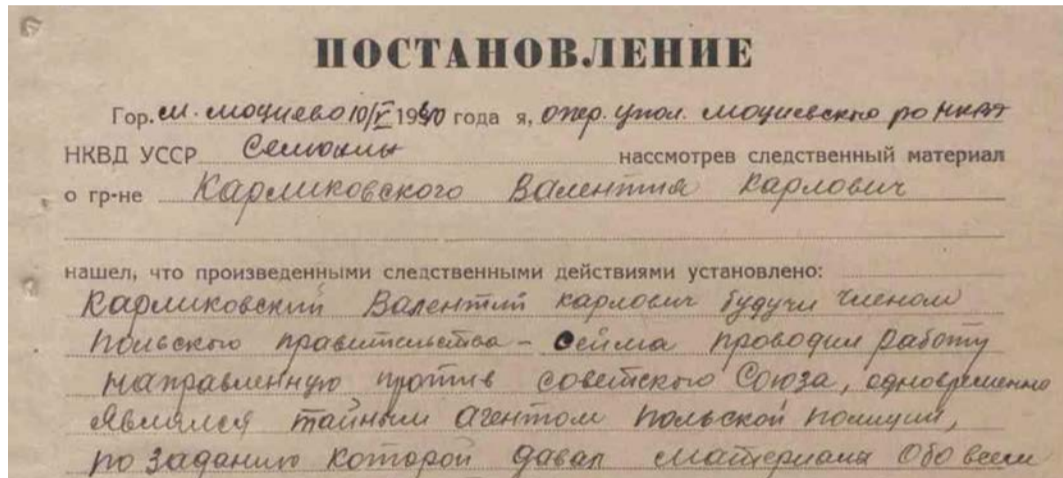 ПОСТАНОВЛЕНИЕ
Гор. м. моциево 10/V 1940 года я, опер. упол. моциевского ро НКВД
НКВД УССР Семохин нассмотрев следственный материал
о гр-не Кармиковского Валентия Карлович
нашел, что произведенными следственными действиями установлено:
Кармиковский Валентий карлович будучи членом
Польского правительства - Сейма проводил работу
направленную против Советского Союза, одновременно
являлся тайным агентом польской полиции,
по заданию которой давал материалы Обо всем